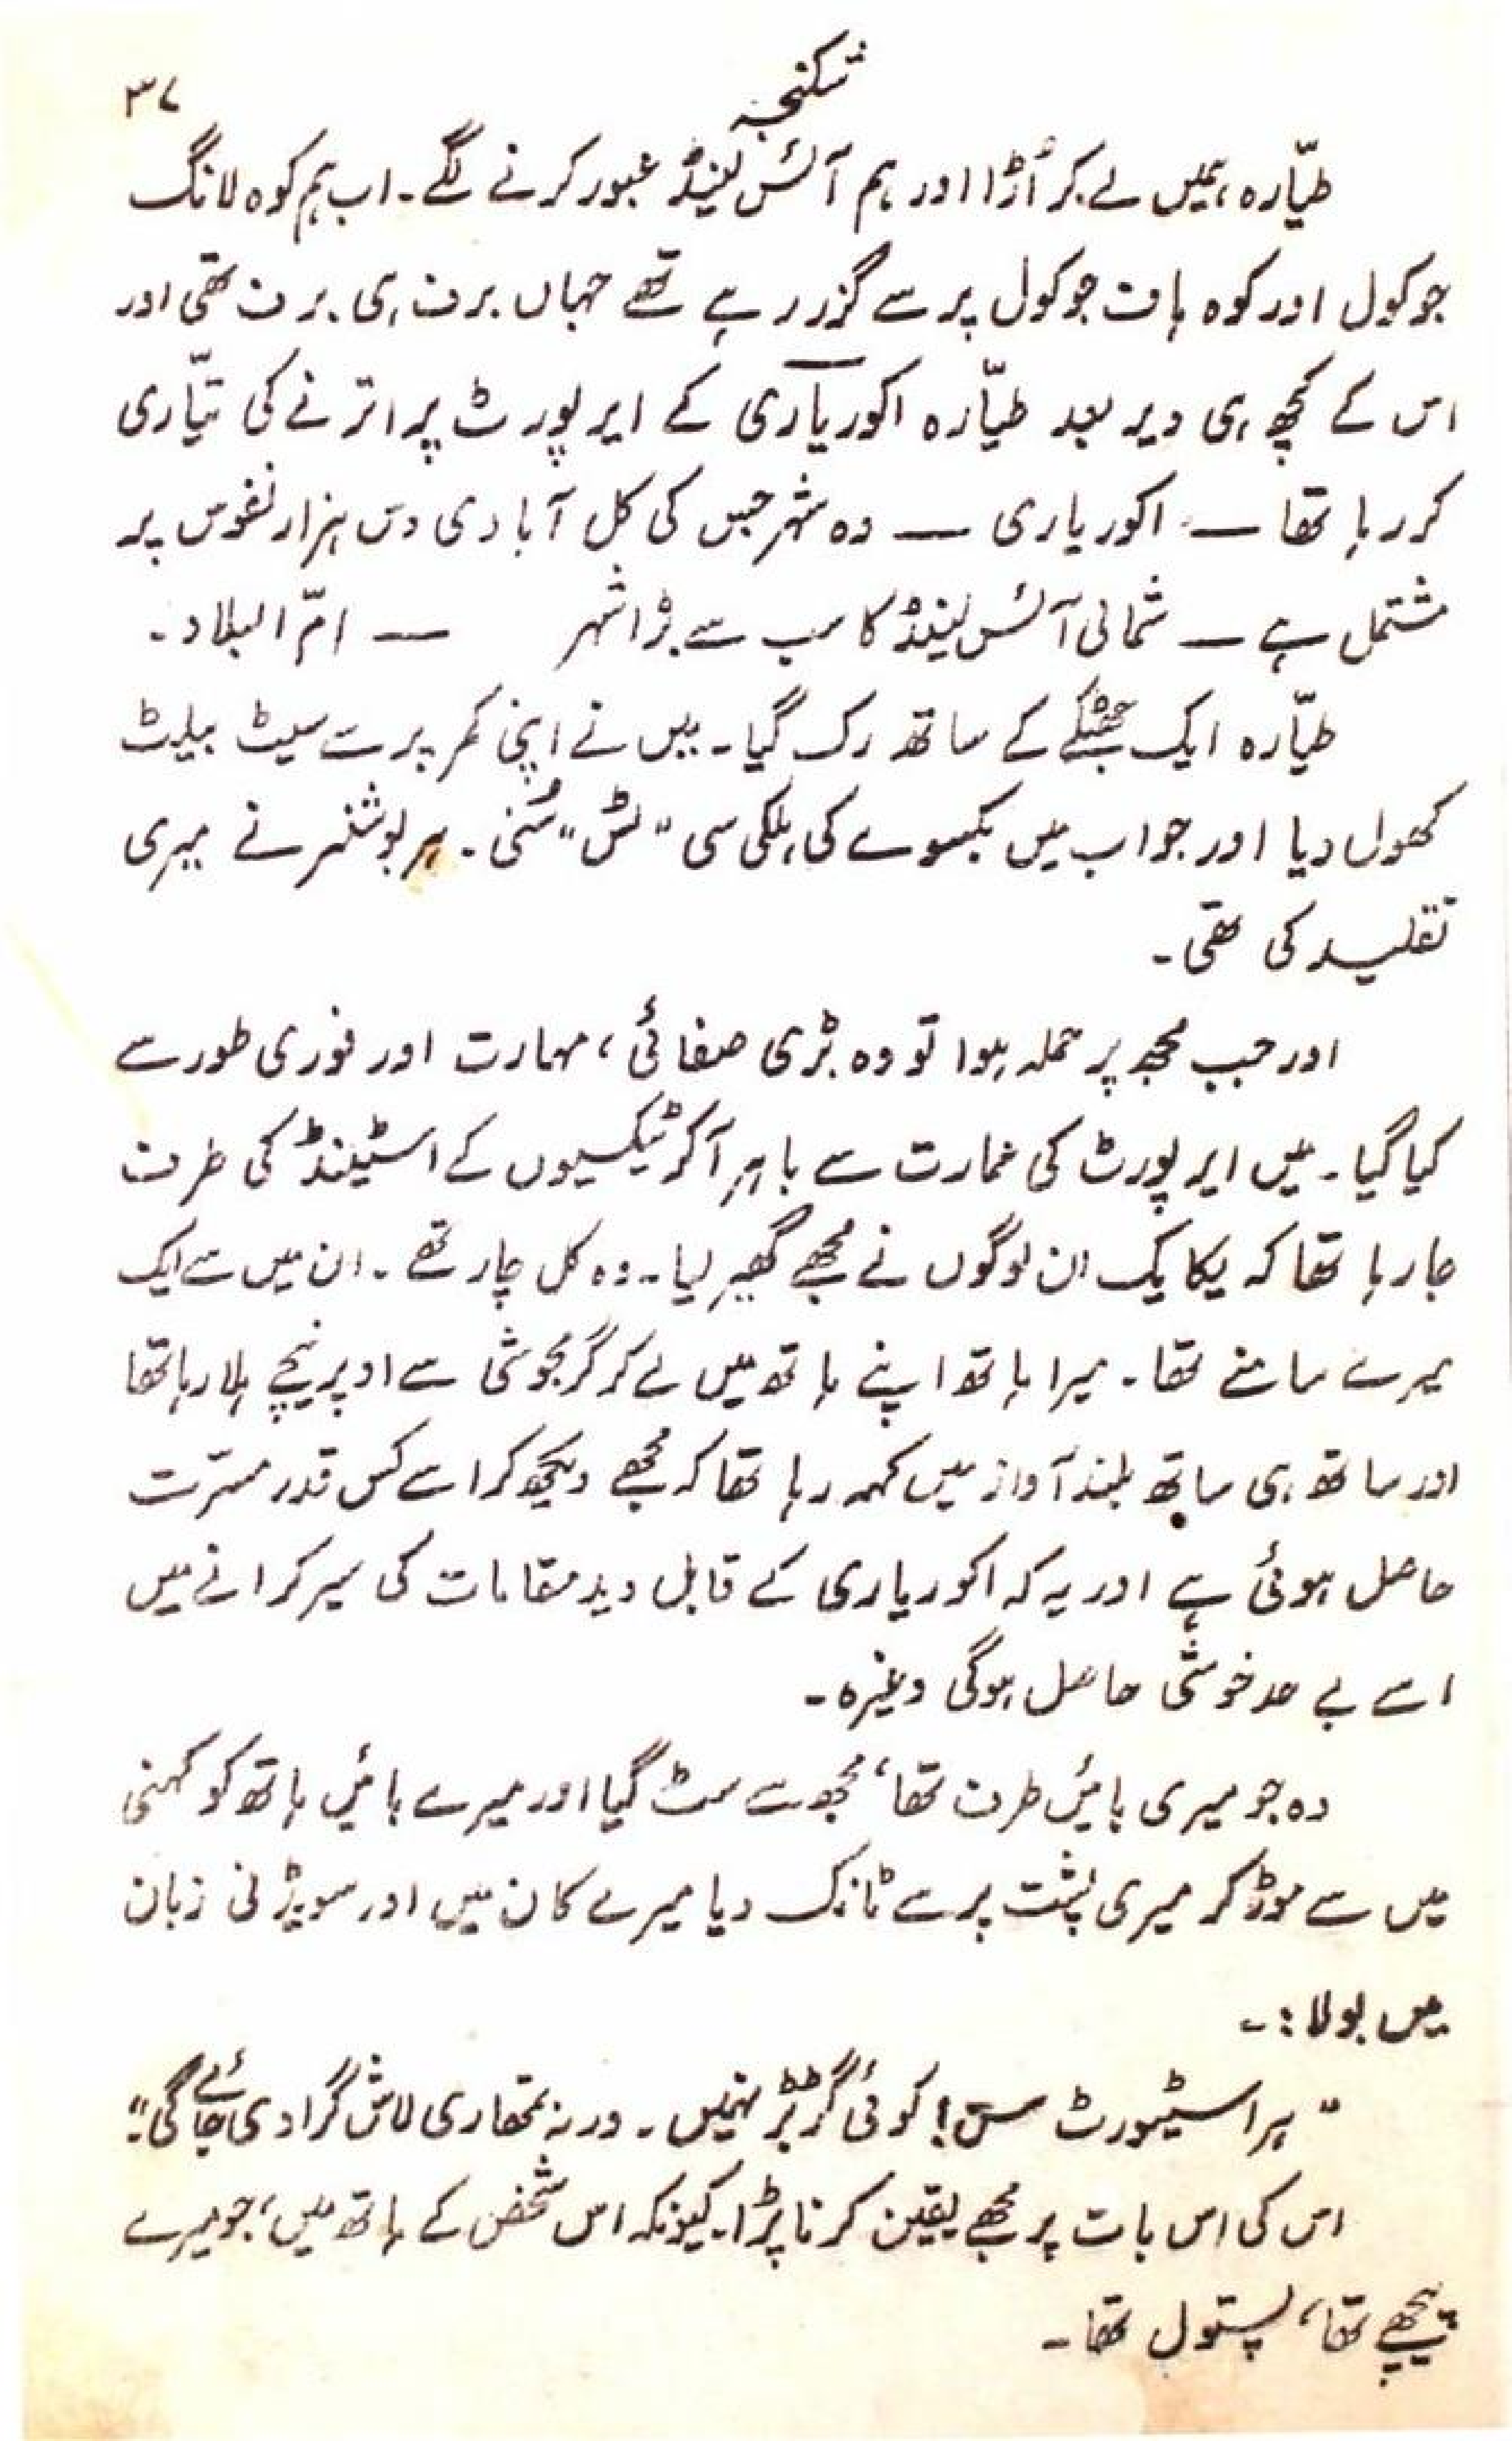 شکنجہ
۳۷
طیّارہ ہمیں لے کر اُڑا اور ہم آئس لینڈ عبور کرنے لگے۔ اب ہم کوہ لانگ
جوکول اور کوہ ہاف جوکول پر سے گزر رہے تھے جہاں برف ہی برف تھی اور
اس کے کچھ ہی دیر بعد طیّارہ اکوریاری کے ایر پورٹ پر اترنے کی تیّاری
کر رہا تھا — اکوریاری — وہ شہر جس کی کل آبادی دس ہزار نفوس پر
مشتمل ہے — شمالی آئس لینڈ کا سب سے بڑا شہر — امّ البلاد۔
طیّارہ ایک جھٹکے کے ساتھ رک گیا۔ میں نے اپنی کمر پر سے سیٹ بیلٹ
کھول دیا اور جواب میں بکسوے کی ہلکی سی "ٹس" سُنی۔ ہر بوشنر نے میری
تقلید کی تھی۔
اور جب مجھ پر حملہ ہوا تو وہ بڑی صفائی، مہارت اور فوری طور سے
کیا گیا۔ میں ایر پورٹ کی عمارت سے باہر آ کر ٹیکسیوں کے اسٹینڈ کی طرف
جا رہا تھا کہ یکایک ان لوگوں نے مجھے گھیر لیا۔ وہ کل چار تھے۔ ان میں سے ایک
میرے سامنے تھا۔ میرا ہاتھ اپنے ہاتھ میں لے کر گرمجوشی سے اوپر نیچے ہلا رہا تھا
اور ساتھ ہی ساتھ بلند آواز میں کہہ رہا تھا کہ مجھے دیکھ کر اسے کس قدر مسرّت
حاصل ہوئی ہے اور یہ کہ اکوریاری کے قابل دید مقامات کی سیر کرانے میں
اسے بے حد خوشی حاصل ہوگی وغیرہ۔
وہ جو میری بائیں طرف تھا، مجھ سے سٹ گیا اور میرے بائیں ہاتھ کو کہنی
میں سے موڑ کر میری پشت پر سے ٹانک دیا میرے کان میں اور سویڈنی زبان
میں بولا:۔
"ہر اسٹیورٹ سن! کوئی گڑبڑ نہیں۔ ورنہ تمھاری لاش گرا دی جائے گی۔"
اس کی اس بات پر مجھے یقین کرنا پڑا۔ کیونکہ اس شخص کے ہاتھ میں، جو میرے
پیچھے تھا، پستول تھا۔